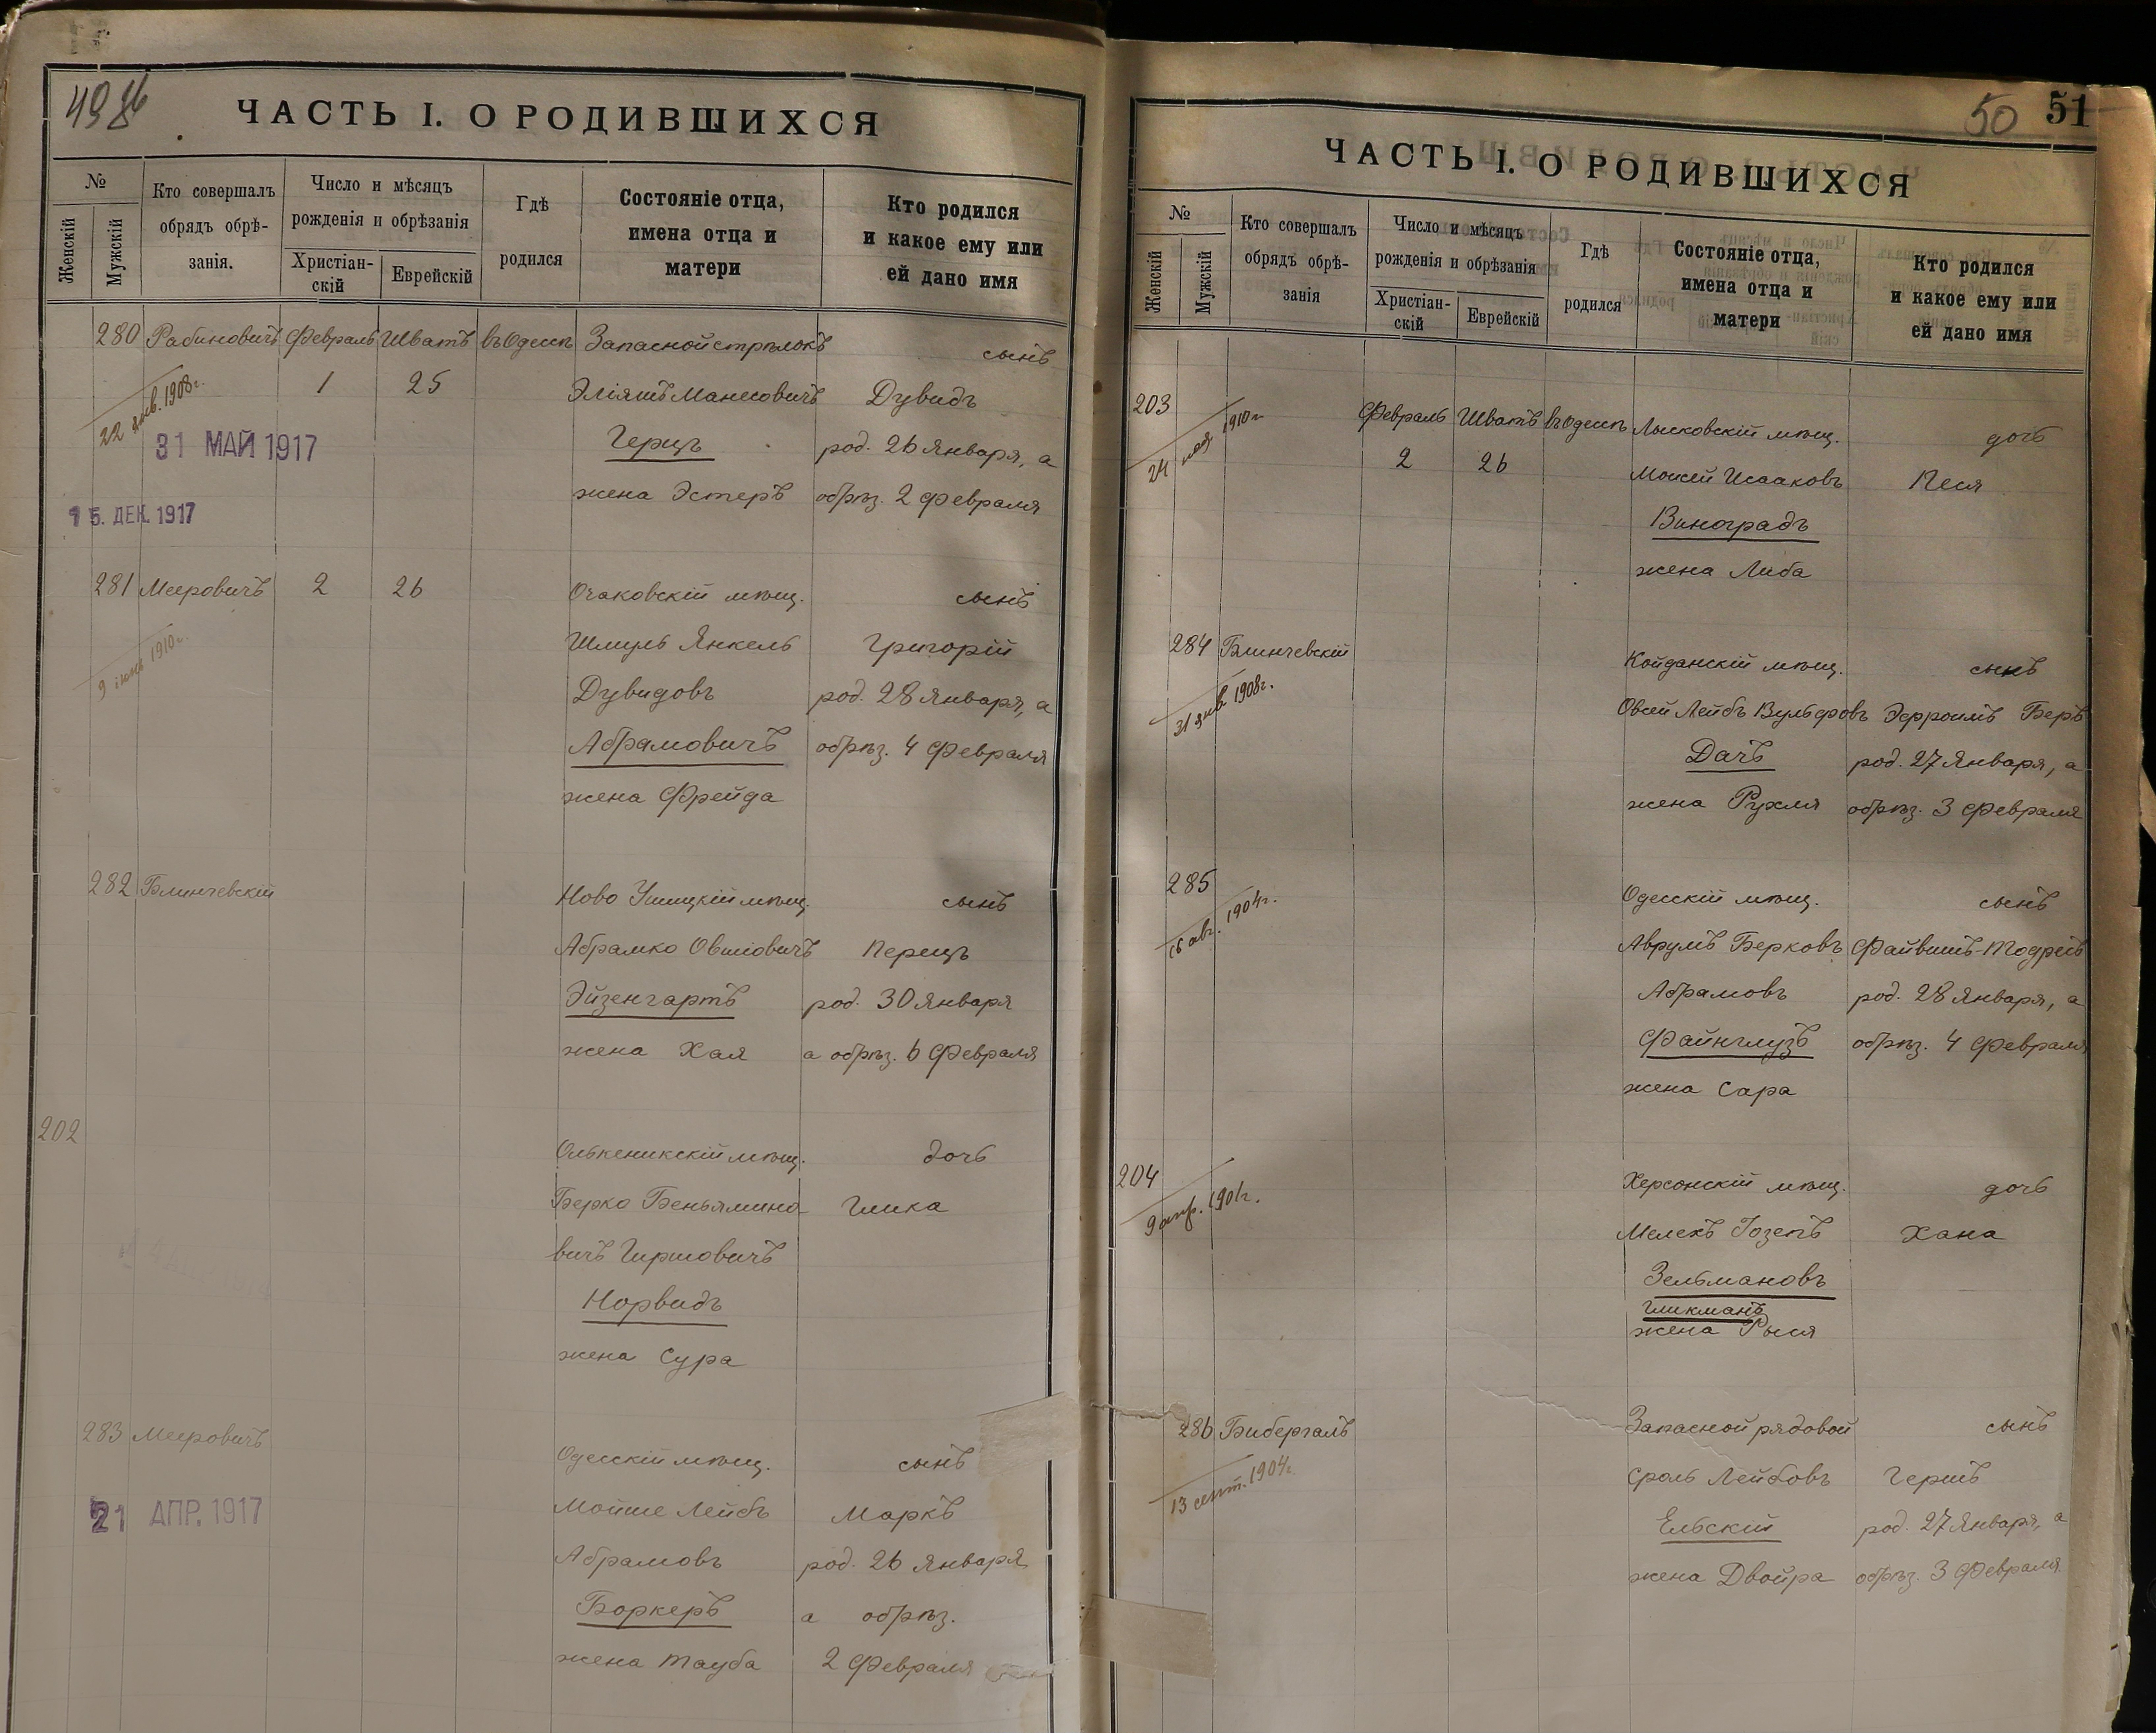 49 об
ЧАСТЬ I. О РОДИВШИХСЯ
№
Женскій
Мужскій
Кто совершалъ
обрядъ обрѣ-
занія.
Число и мѣсяцъ
рожденія и обрѣзанія
Христіан-
скій
Еврейскій
Гдѣ
родился
Состояніе отца,
имена отца и
матери
Кто родился
и какое ему или
ей дано имя
280 Рабиновичъ Февраль Шватъ въ Одессѣ Запасной стрѣлокъ сынъ
1 25 Эліяшъ Манесовичъ Дувидъ
22 янв. 1908г.
31 МАЙ 1917
Герцъ род. 26 Января, а
жена Эстеръ обрѣз. 2 Февраля
15. ДЕК. 1917
281 Мееровичъ 2 26 Очаковскій мѣщ. сынъ
Шмуль Янкель Григорій
9 іюня 1910г.
Дувидовъ род. 28 Января, а
Абрамовичъ обрѣз. 4 Февраля
жена Фрейда
282 Блинчевскій Ново Ушицкій мѣщ. сынъ
Абрамко Овшіовичъ Перецъ
Эйзенгартъ род. 30 Января
жена Хая а обрѣз. 6 Февраля
202
Олькеникскій мѣщ. дочь
Берко Беньямино- Гликa
вичъ Гиршовичъ
Норвидъ
жена Сура
283 Мееровичъ
Одесскій мѣщ. сынъ
Мойше Лейбъ Маркъ
21 АПР. 1917
Абрамовъ род. 26 Января
Боркеръ а обрѣз.
жена Тауба 2 Февраля
50 51
ЧАСТЬ I. О РОДИВШИХСЯ
№
Женскій
Мужскій
Кто совершалъ
обрядъ обрѣ-
занія
Число и мѣсяцъ
рожденія и обрѣзанія
Христіан-
скій
Еврейскій
Гдѣ
родился
Состояніе отца,
имена отца и
матери
Кто родился
и какое ему или
ей дано имя
203 Февраль Шватъ въ Одессѣ Лысковскій мѣщ. дочь
24 мая 1910г.
2 26 Моисей Исааковъ Песя
Виноградъ
жена Либа
284 Блинчевскій Койданскій мѣщ. сынъ
31 янв 1908г.
Овсей Лейбъ Вульфовъ Эфроимъ Беръ
Дачъ род. 27 Января, а
жена Рухля обрѣз. 3 Февраля
285 Одесскій мѣщ. сынъ
16 авг. 1904г.
Аврумъ Берковъ Файвишъ-Тодресъ
Абрамовъ род. 28 Января, а
Файнглузъ обрѣз. 4 Февраля
жена Сара
204 Херсонскій мѣщ. дочь
9 апр. 1901г.
Мелехъ Іозепъ Хана
Зельмановъ
Гликманъ
жена Рыся
286 Бибергалъ Запасной рядовой сынъ
13 сент. 1904г.
Сроль Лейбовъ Гершъ
Ельскій род. 27 Января, а
жена Двойра обрѣз. 3 Февраля